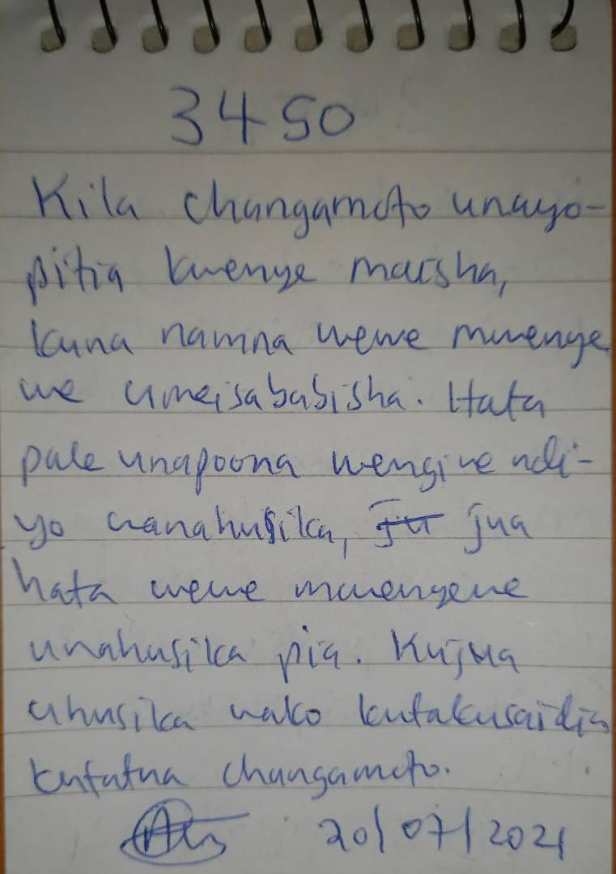 3450
Kila changamoto unayo-
pitia kwenye maisha,
kuna namna wewe mwenye
we umeisababisha. Hata
pale unapoona wengine ndi-
yo wanahusika, ju jua
hata wewe mwenyewe
unahusika pia. Kujua
uhusika wako kutakusaidia
kutatua changamoto.
20/07/2021